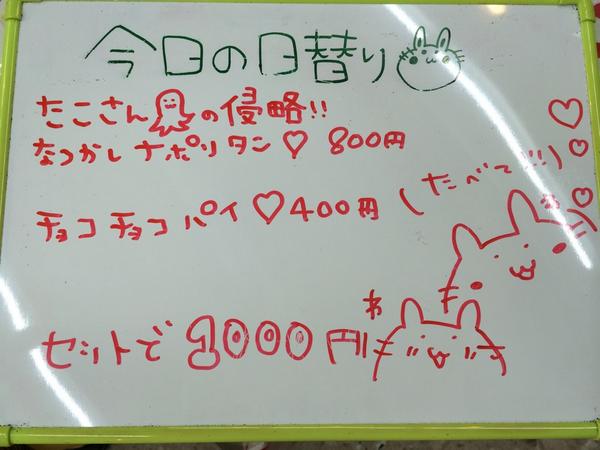 今日の日替り
たこさんの侵略!!
なつかしナポリタン♡ 800円
チョコチョコパイ♡400円
(たべて!!!)
セットで 1000円